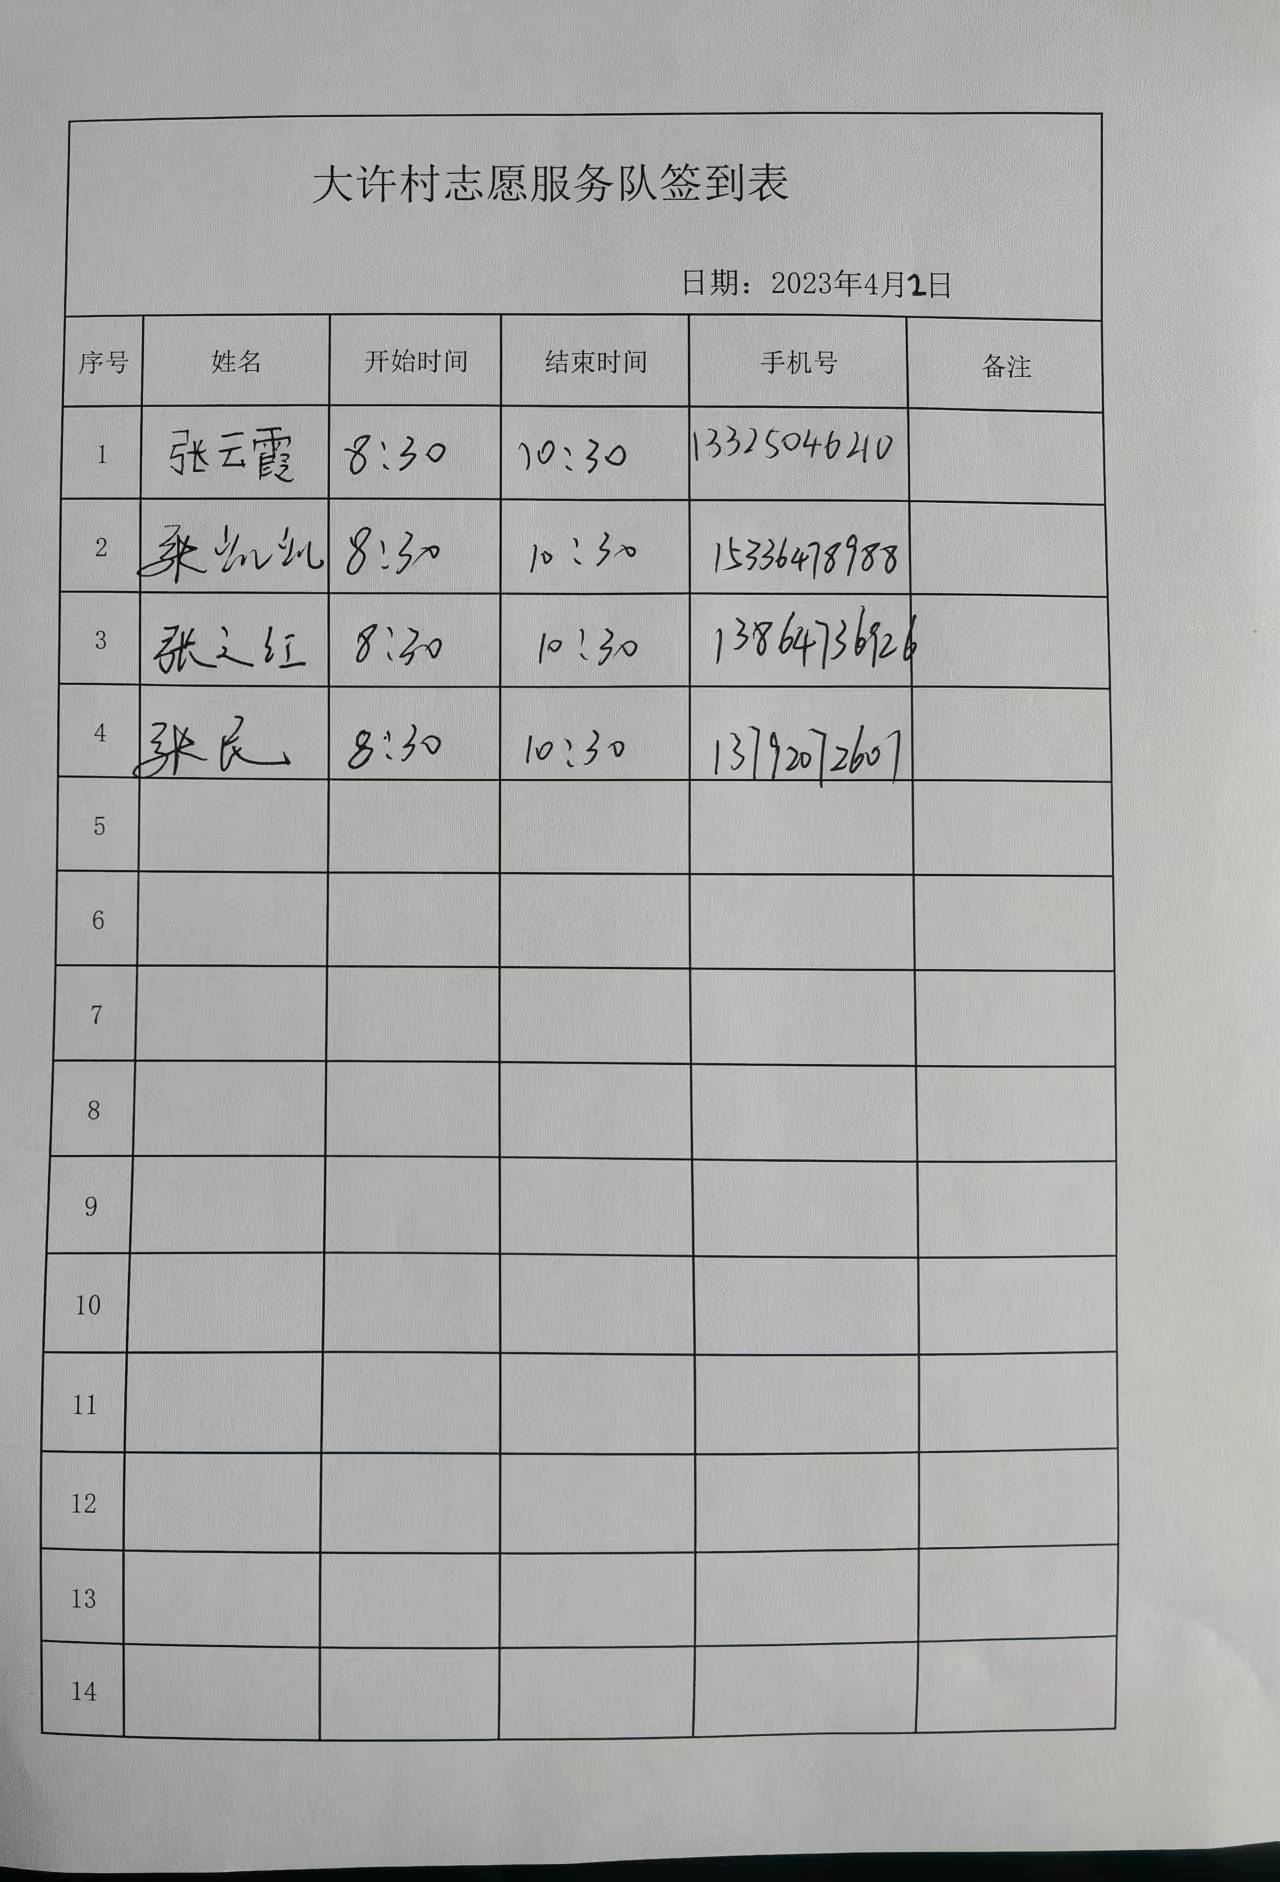 大许村志愿服务队签到表
日期：2023年4月2日
序号 姓名 开始时间 结束时间 手机号 备注
1 张云霞 8:30 10:30 13325046210
2 张凯凯 8:30 10:30 15336478988
3 张文红 8:30 10:30 13864736926
4 张民 8:30 10:30 13792072607
5
6
7
8
9
10
11
12
13
14